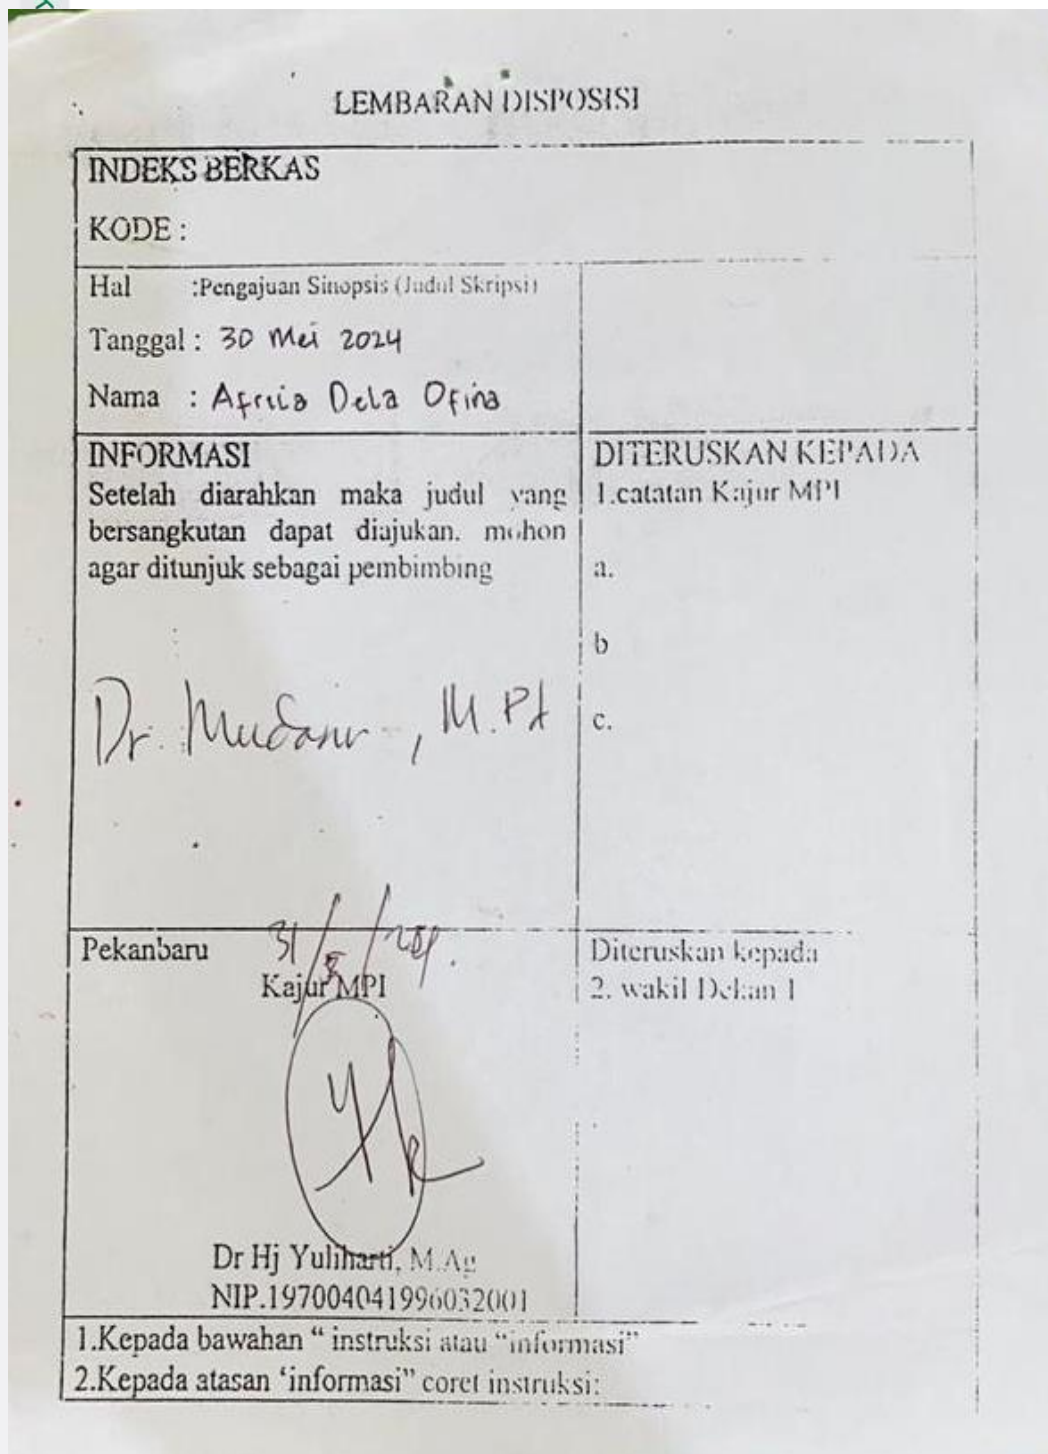 LEMBARAN DISPOSISI
INDEKS BERKAS
KODE :
Hal :Pengajuan Sinopsis (Judul Skripsi)
Tanggal : 30 Mei 2024
Nama : Dela Ofina
INFORMASI
Setelah diarahkan maka judul yang
bersangkutan dapat diajukan. mohon
agar ditunjuk sebagai pembimbing
Dr. Mudasir, M.Pd
DITERUSKAN KEPADA
1.catatan Kajur MPI
a.
b
c.
Pekanbaru 31/5/
Kajur MPI
Dr Hj Yuliharti, M.Ag
NIP.197004041996032001
Diteruskan kepada
2. wakil Dekan 1
1.Kepada bawahan “ instruksi atau “informasi”
2.Kepada atasan ‘informasi” coret instruksi: